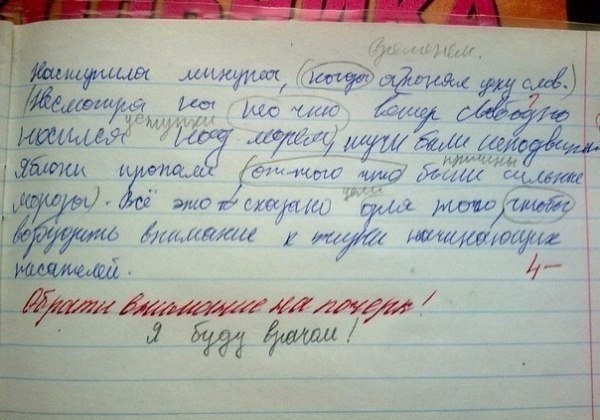 временем.
Наступила минута, (когда я понял цену слов.)
(Несмотря на то что ветер свободно
уступки
носился над морем, тучи были неподвижн
причины
Яблони пропали (оттого что были сильные
цели
морозы). Всё это сказано для того, чтобы
возбудить внимание к жизни начинающих
писателей.
4-
Обрати внимание на почерк!
Я буду врачом!